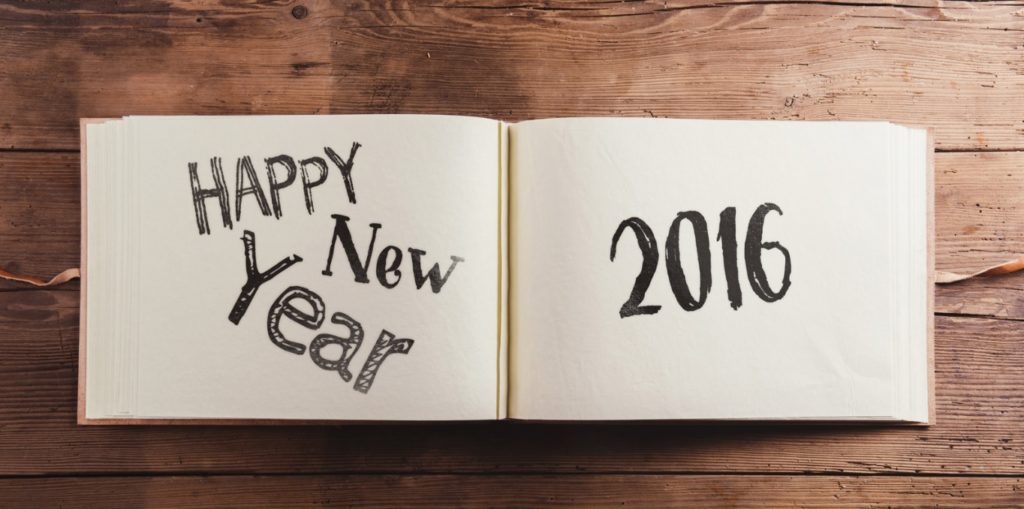 HAPPY
New
Year
2016